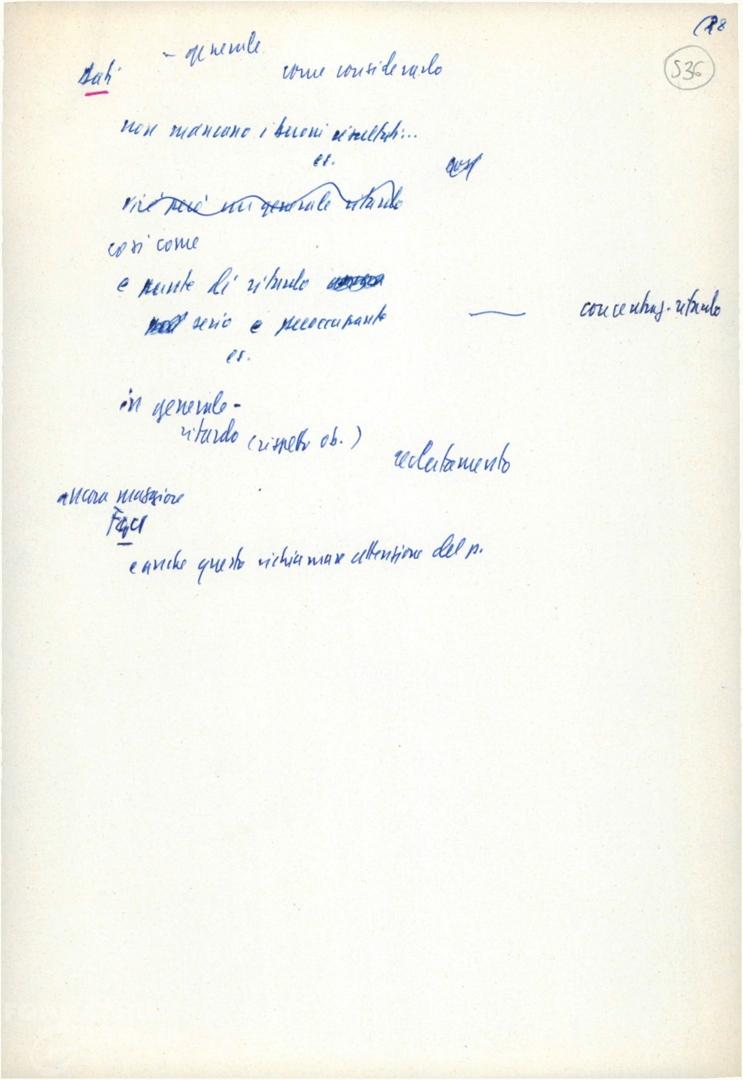 28
536
Dati - generale
come considerarlo
non mancano i buoni risultati...
es.
vi è però un generale ritardo
così come
e punte di ritardo
serio e preoccupante — concentraz. ritardo
es.
in generale -
ritardo (rispetto ob.)
reclutamento
ancora maggiore
Fgci
e anche questo richiamare attenzione del p.